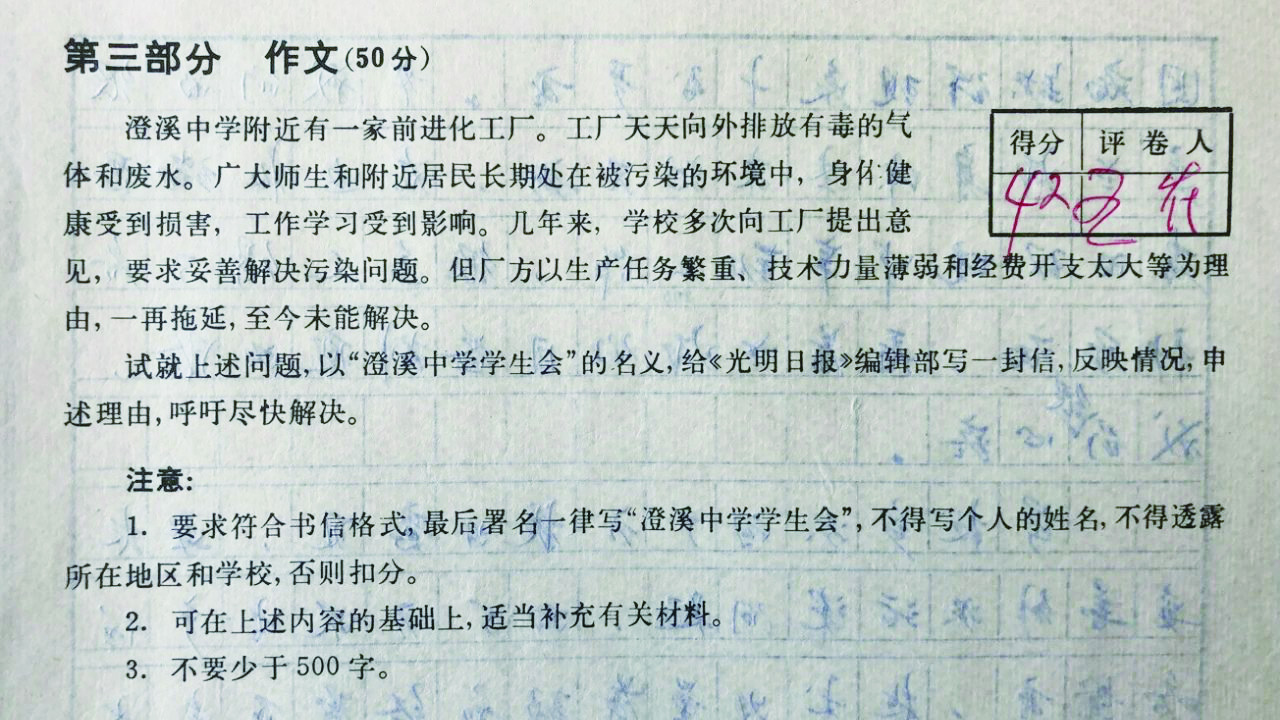 第三部分 作文(50分)
澄溪中学附近有一家前进化工厂。工厂天天向外排放有毒的气
体和废水。广大师生和附近居民长期处在被污染的环境中，身体健
康受到损害，工作学习受到影响。几年来，学校多次向工厂提出意
见，要求妥善解决污染问题。但厂方以生产任务繁重、技术力量薄弱和经费开支太大等为理
由，一再拖延，至今未能解决。
得分 评卷人
42
试就上述问题，以“澄溪中学学生会”的名义，给《光明日报》编辑部写一封信，反映情况，申
述理由，呼吁尽快解决。
注意：
1. 要求符合书信格式，最后署名一律写“澄溪中学学生会”，不得写个人的姓名，不得透露
所在地区和学校，否则扣分。
2. 可在上述内容的基础上，适当补充有关材料。
3. 不要少于500字。